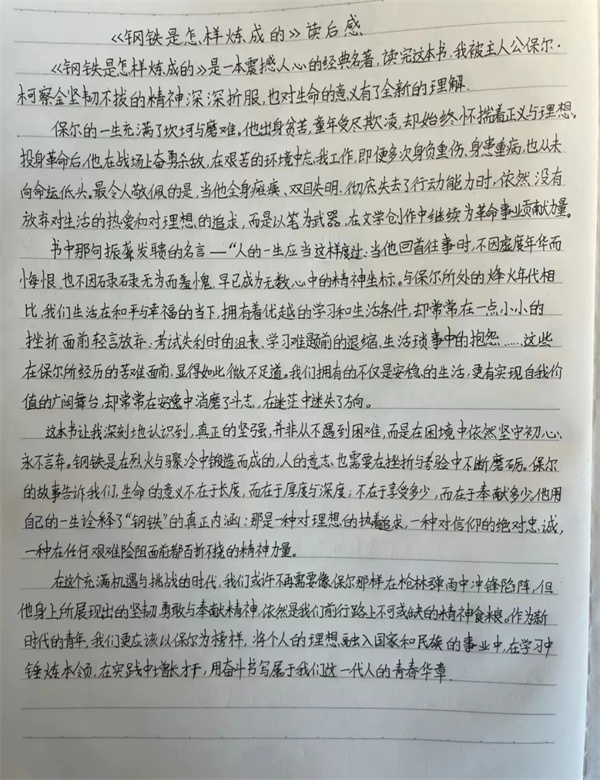 《钢铁是怎样炼成的》读后感
《钢铁是怎样炼成的》是一本震撼人心的经典名著,读完这本书,我被主人公保尔·
柯察金坚韧不拔的精神深深折服,也对生命的意义有了全新的理解.
保尔的一生充满了坎坷与磨难。他出身贫苦,童年受尽欺凌,却始终怀揣着正义与理想。
投身革命后,他在战场上奋勇杀敌,在艰苦的环境中忘我工作,即便多次身负重伤、身患重病,也从未
向命运低头。最令人敬佩的是,当他全身瘫痪、双目失明,彻底失去了行动能力时,依然没有
放弃对生活的热爱和对理想的追求,而是以笔为武器,在文学创作中继续为革命事业贡献力量。
书中那句振聋发聩的名言——“人的一生应当这样度过:当他回首往事时,不因虚度年华而
悔恨,也不因碌碌无为而羞愧,早已成为无数心中的精神坐标。与保尔所处的烽火年代相
比,我们生活在和平与幸福的当下,拥有着优越的学习和生活条件,却常常在一点小小的
挫折面前轻言放弃:考试失利时的沮丧、学习难题前的退缩、生活琐事中的抱怨......这些
在保尔所经历的苦难面前,显得如此微不足道。我们拥有的不仅是安稳的生活,更有实现自我价
值的广阔舞台,却常常在安逸中消磨了斗志,在迷茫中迷失了方向。
这本书让我深刻地认识到,真正的坚强,并非从不遇到困难,而是在困境中依然坚守初心、
永不言弃。钢铁是在烈火与骤冷中锻造而成的,人的意志也需要在挫折与考验中不断磨砺。保尔
的故事告诉我们,生命的意义不在于长度,而在于厚度与深度;不在于享受多少,而在于奉献多少,他用
自己的一生诠释了“钢铁”的真正内涵:那是一种对理想的执着追求,一种对信仰的绝对忠诚,
一种在任何艰难险阻面前都百折不挠的精神力量。
在这个充满机遇与挑战的时代,我们或许不再需要像保尔那样在枪林弹雨中冲锋陷阵,但
他身上所展现出的坚韧、勇敢与奉献精神,依然是我们前行路上不可或缺的精神食粮。作为新
时代的青年,我们更应该以保尔为榜样,将个人的理想融入国家和民族的事业中,在学习中
锤炼本领,在实践中增长才干,用奋斗书写属于我们这一代人的青春华章.